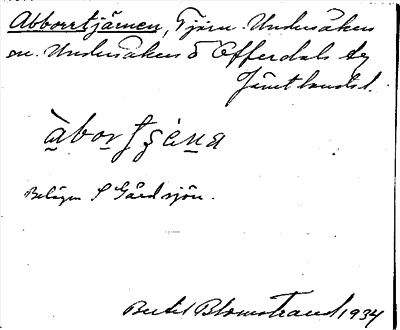 Abborrtjärnen, Tjärn. Undersåkers
sn. Undersåkers o Offerdals tg
Jämtlands l.
àborʃɕèṇa
Belägen S Gårdsjön.
Bertil Blomstrand 1934